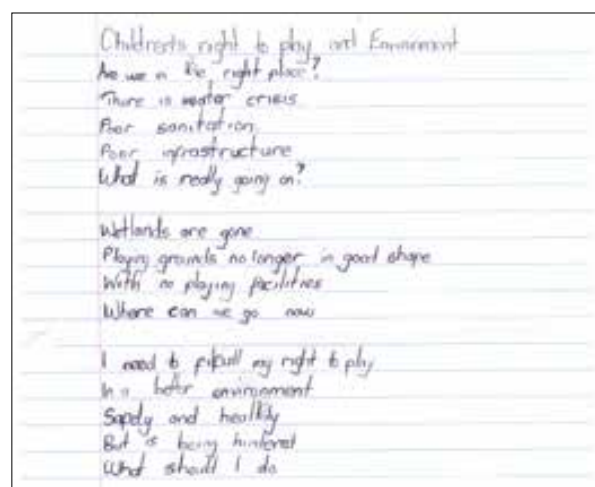 Children's right to play and Environment
Are we in the right place?
There is water crisis
Poor sanitation
Poor infrastructure
What is really going on?
Wetlands are gone
Playing grounds no longer in good shape
With no playing facilities
Where can we go now
I need to fulfull my right to play
In a better environment
Safely and healthly
But is being hindered
What should I do